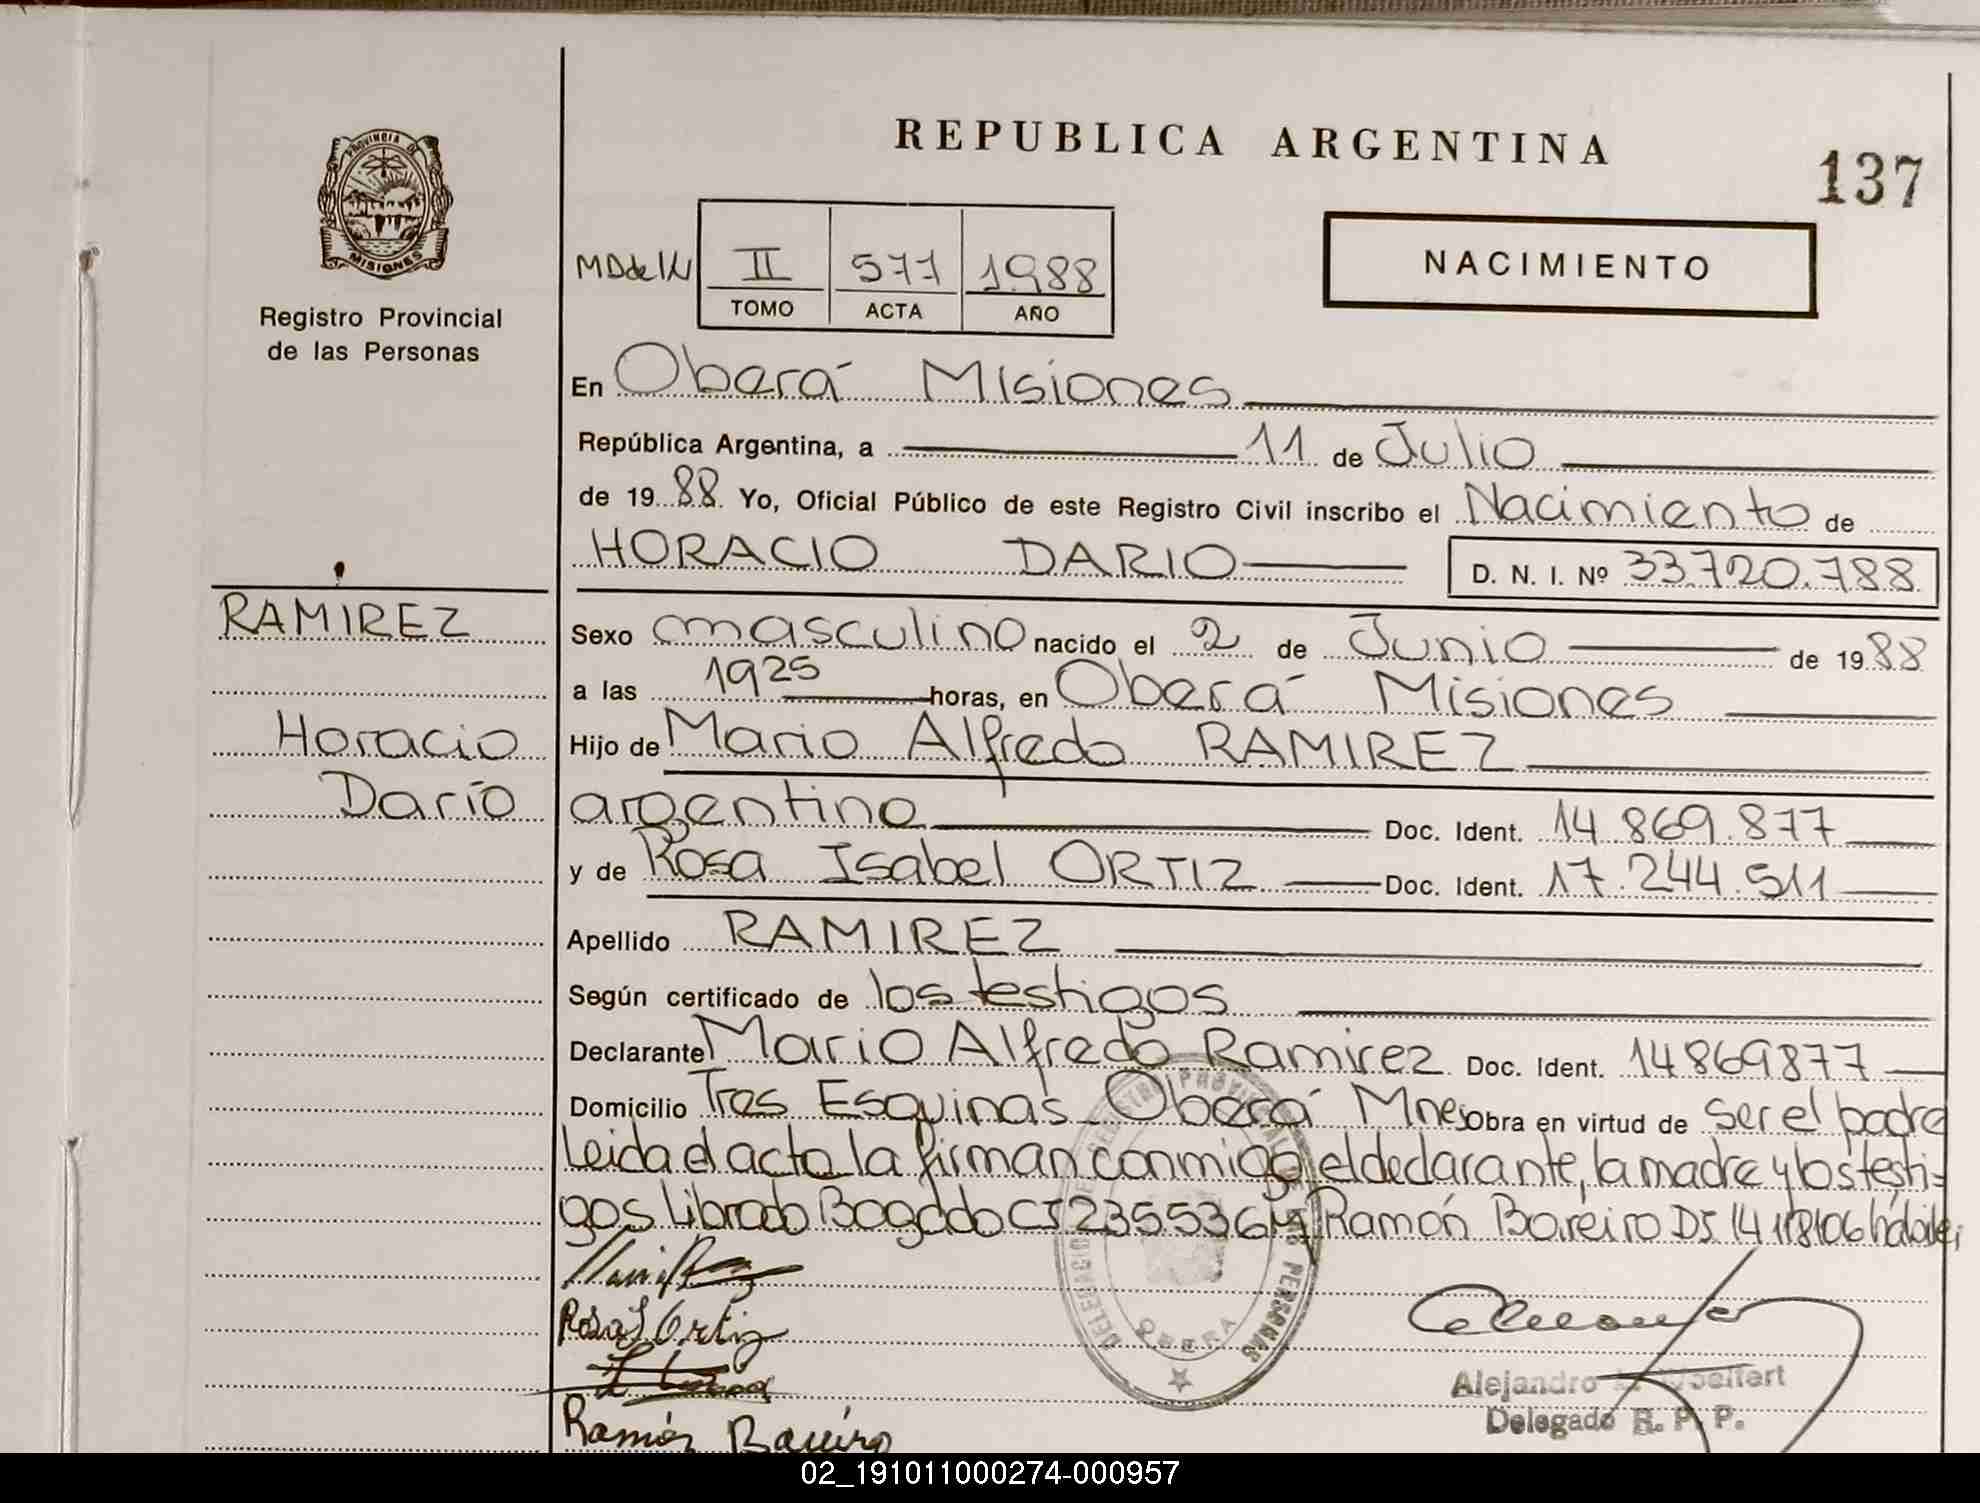 PROVINCIA DE
MISIONES
Registro Provincial
de las Personas
RAMIREZ
Horacio
Darío
REPUBLICA ARGENTINA
137
NACIMIENTO
II 577 1988
TOMO ACTA AÑO
En Oberá Misiones
República Argentina, a 11 de Julio
de 1988 Yo, Oficial Público de este Registro Civil inscribo el Nacimiento de
HORACIO DARIO D. N. I. Nº 33.720.788
Sexo masculino nacido el 2 de Junio de 1988
a las 1925 horas, en Oberá Misiones
Hijo de Mario Alfredo RAMIREZ
argentino Doc. Ident. 14.869.877
y de Rosa Isabel ORTIZ Doc. Ident. 17.244.511
Apellido RAMIREZ
Según certificado de los testigos
Declarante Mario Alfredo Ramirez Doc. Ident. 14869877
Domicilio Tres Esquinas Oberá Mnes Obra en virtud de ser el padre
Leida el acta la firman conmigo el declarante, la madre y los testi-
gos Librado Bogado CI 235536 Ramón Bareiro DI 14118106 hábiles
Rosa I Ortiz
Ramón Bareiro
OBERA
Alejandro
Delegado R. P. P.
02_191011000274-000957